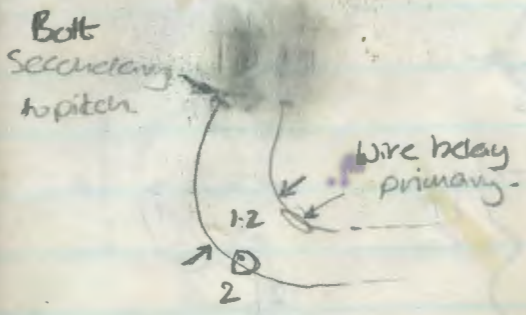 Bolt
Secondary
to pitch
Wire belay
primary.
1.2
2